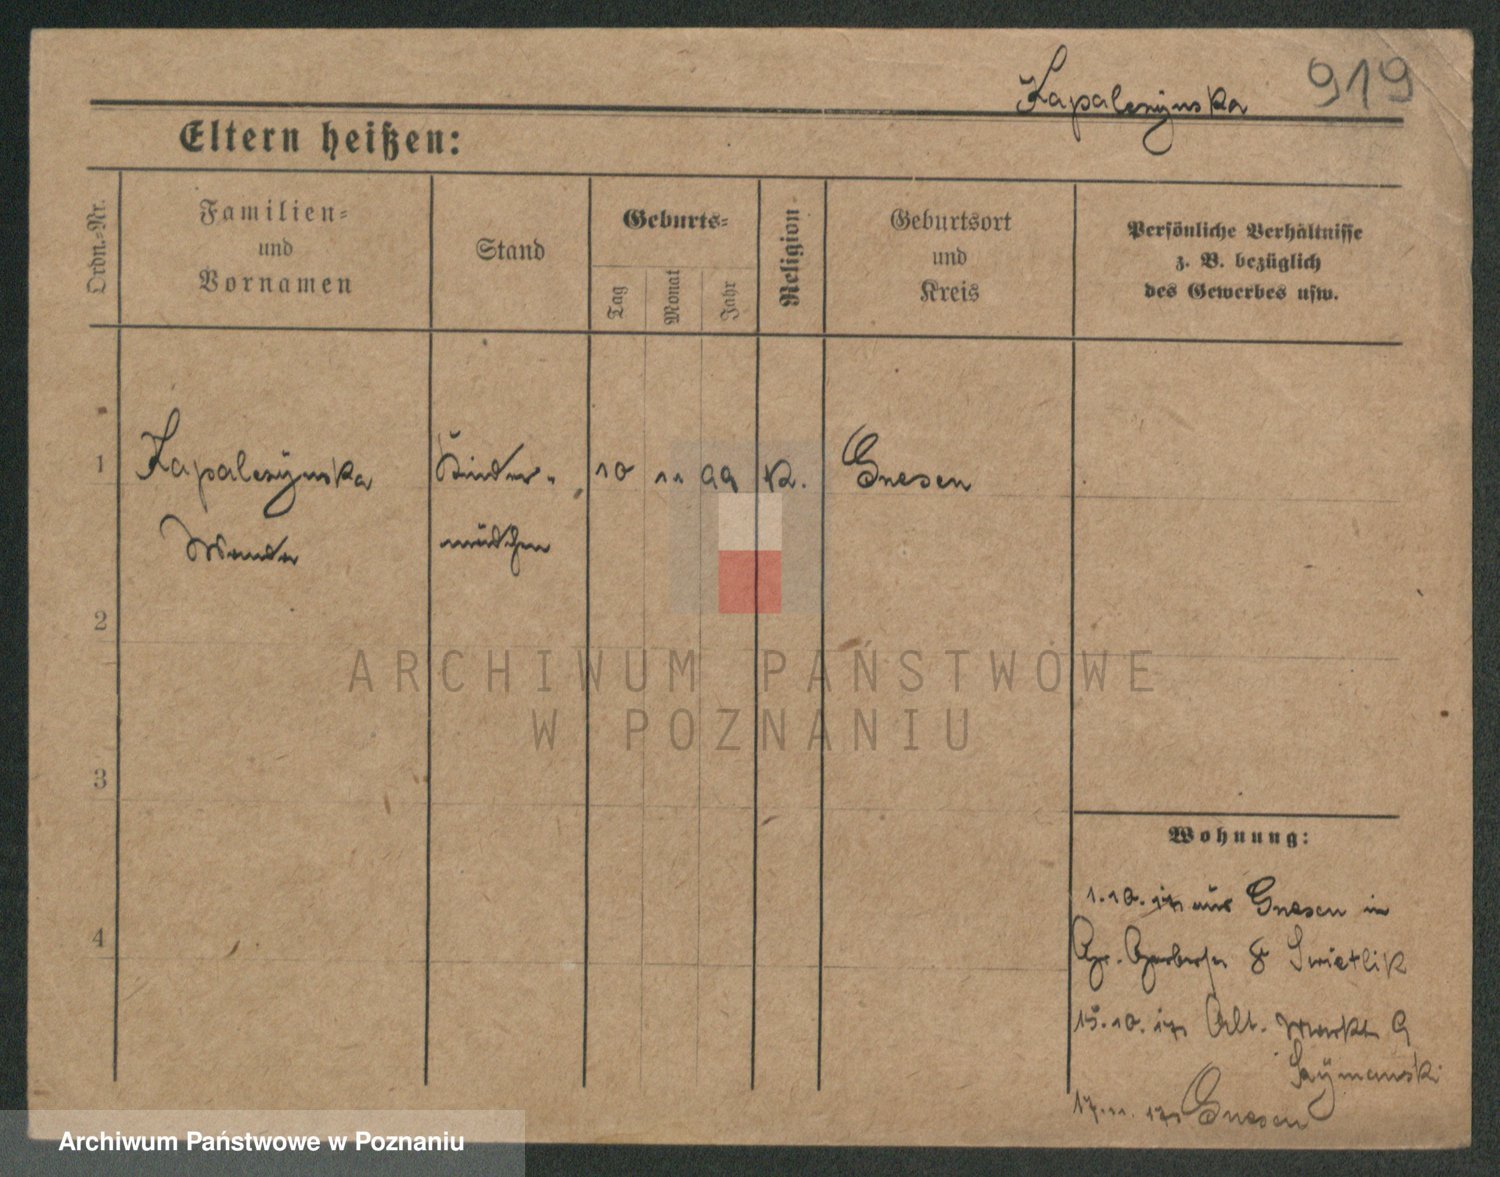 Kapalczynska 919
Eltern heißen:
Ordn.-Nr.
Familien-
und
Vornamen
Stand
Geburts-
Tag
Monat
Jahr
Religion
Geburtsort
und
Kreis
Persönliche Verhältnisse
z. B. bezüglich
des Gewerbes usw.
1 Kapalczynska Kinder- 10 11 99 K. Gnesen
Wanda mädchen
2
3
4
Wohnung:
1.10.17 aus Gnesen in
Gr. 8 Swietlik
15.10.17 Alt. Markt 9
Szymanski
17.11.17 Gnesen
ARCHIWUM PAŃSTWOWE
W POZNANIU
Archiwum Państwowe w Poznaniu